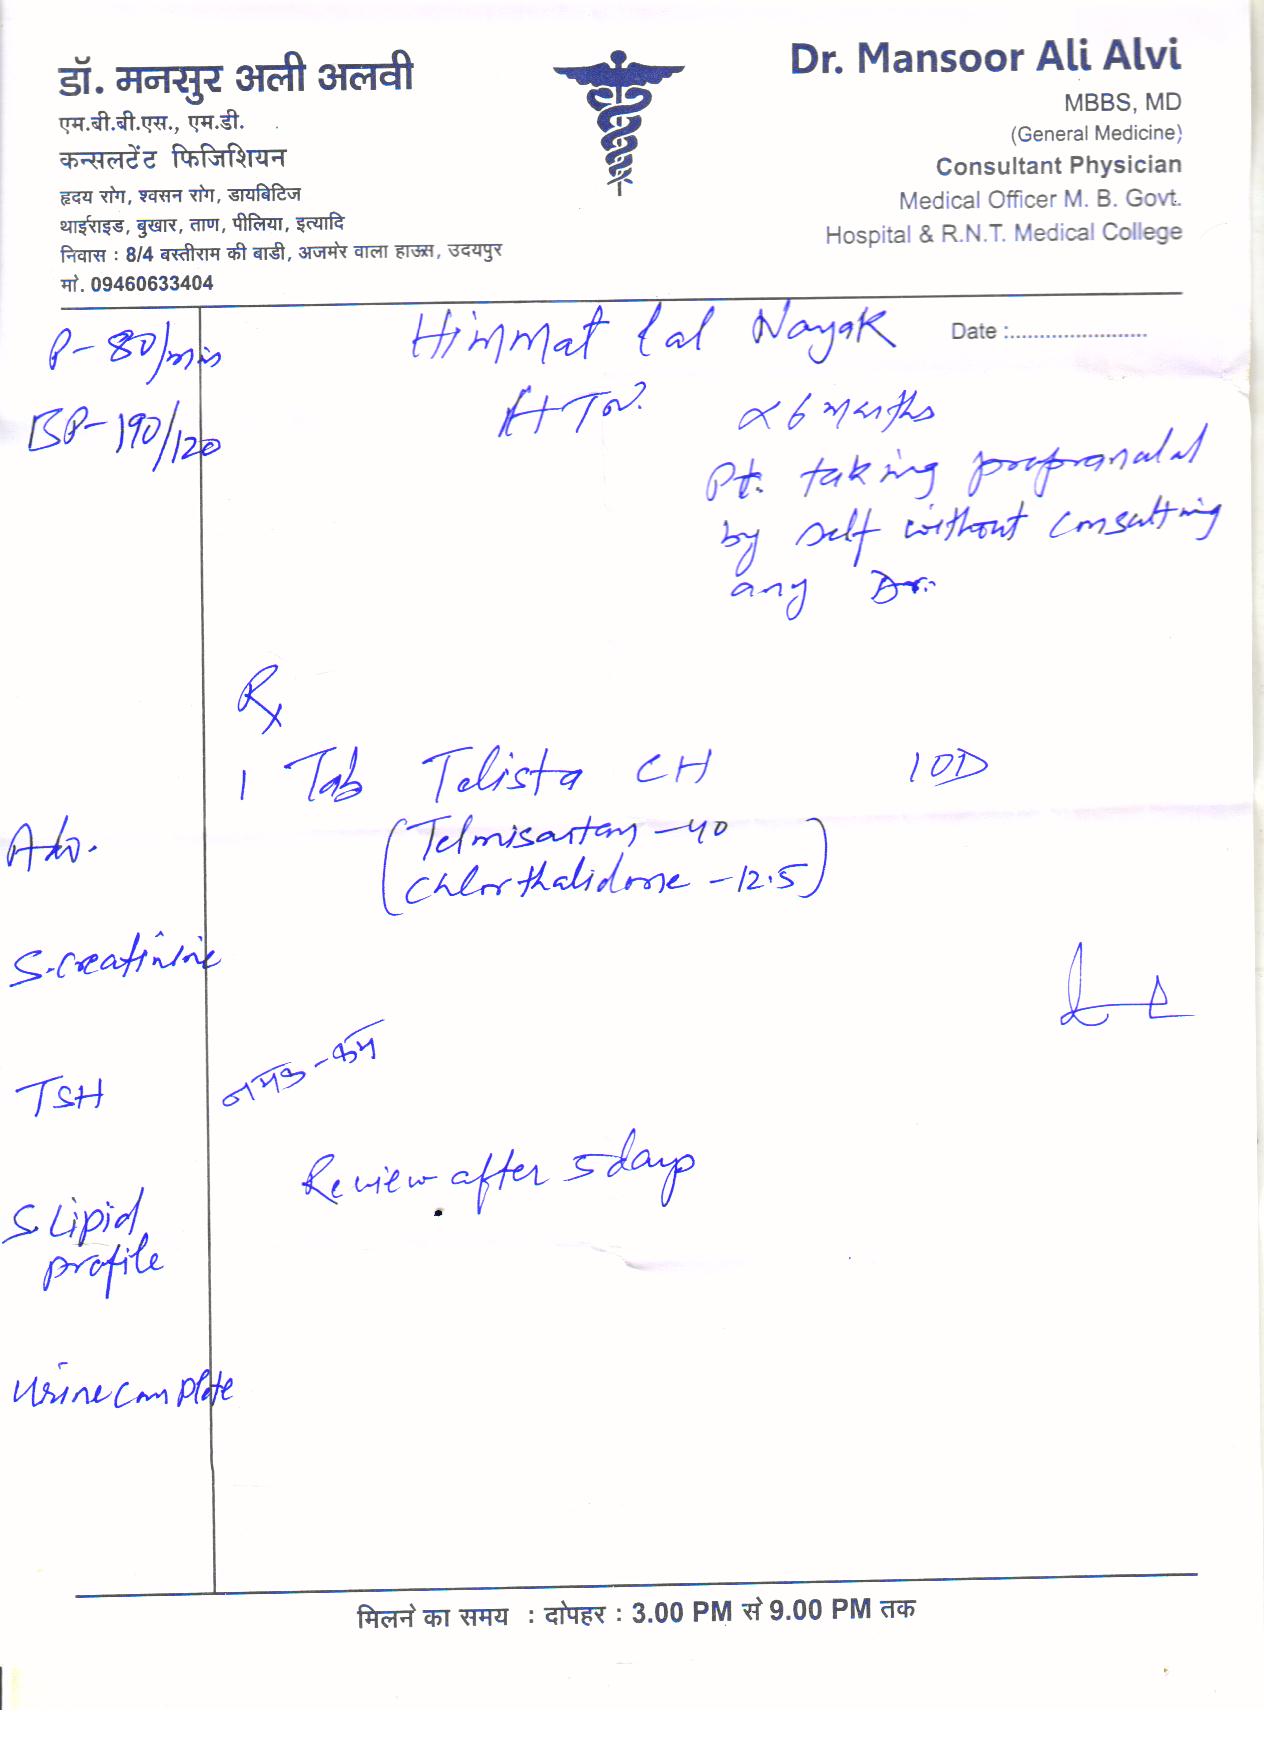 डॉ. मनसुर अली अलवी
एम.बी.बी.एस., एम.डी.
कन्सलटेंट फिजिशियन
हृदय रोग, श्वसन रोग, डायबिटिज
थाईराइड, बुखार, ताण, पीलिया, इत्यादि
निवास : 8/4 बस्तीराम की बाडी, अजमेर वाला हाऊस, उदयपुर
मो. 09460633404
Dr. Mansoor Ali Alvi
MBBS, MD
(General Medicine)
Consultant Physician
Medical Officer M. B. Govt.
Hospital & R.N.T. Medical College
Date :........................
Himmat Lal Nayak
P- 80/min
BP- 190/120
HTN. x 6 months
Pt. taking propranalal
by self without consulting
any Dr.
Rx
1 Tab Telista CH 1 OD
(Telmisartan - 40
Chlorthalidone - 12.5)
Adv.
S. creatinine
TSH
S. Lipid
profile
Urine complete
नमक - कम
Review after 5 days
मिलने का समय : दोपहर : 3.00 PM से 9.00 PM तक